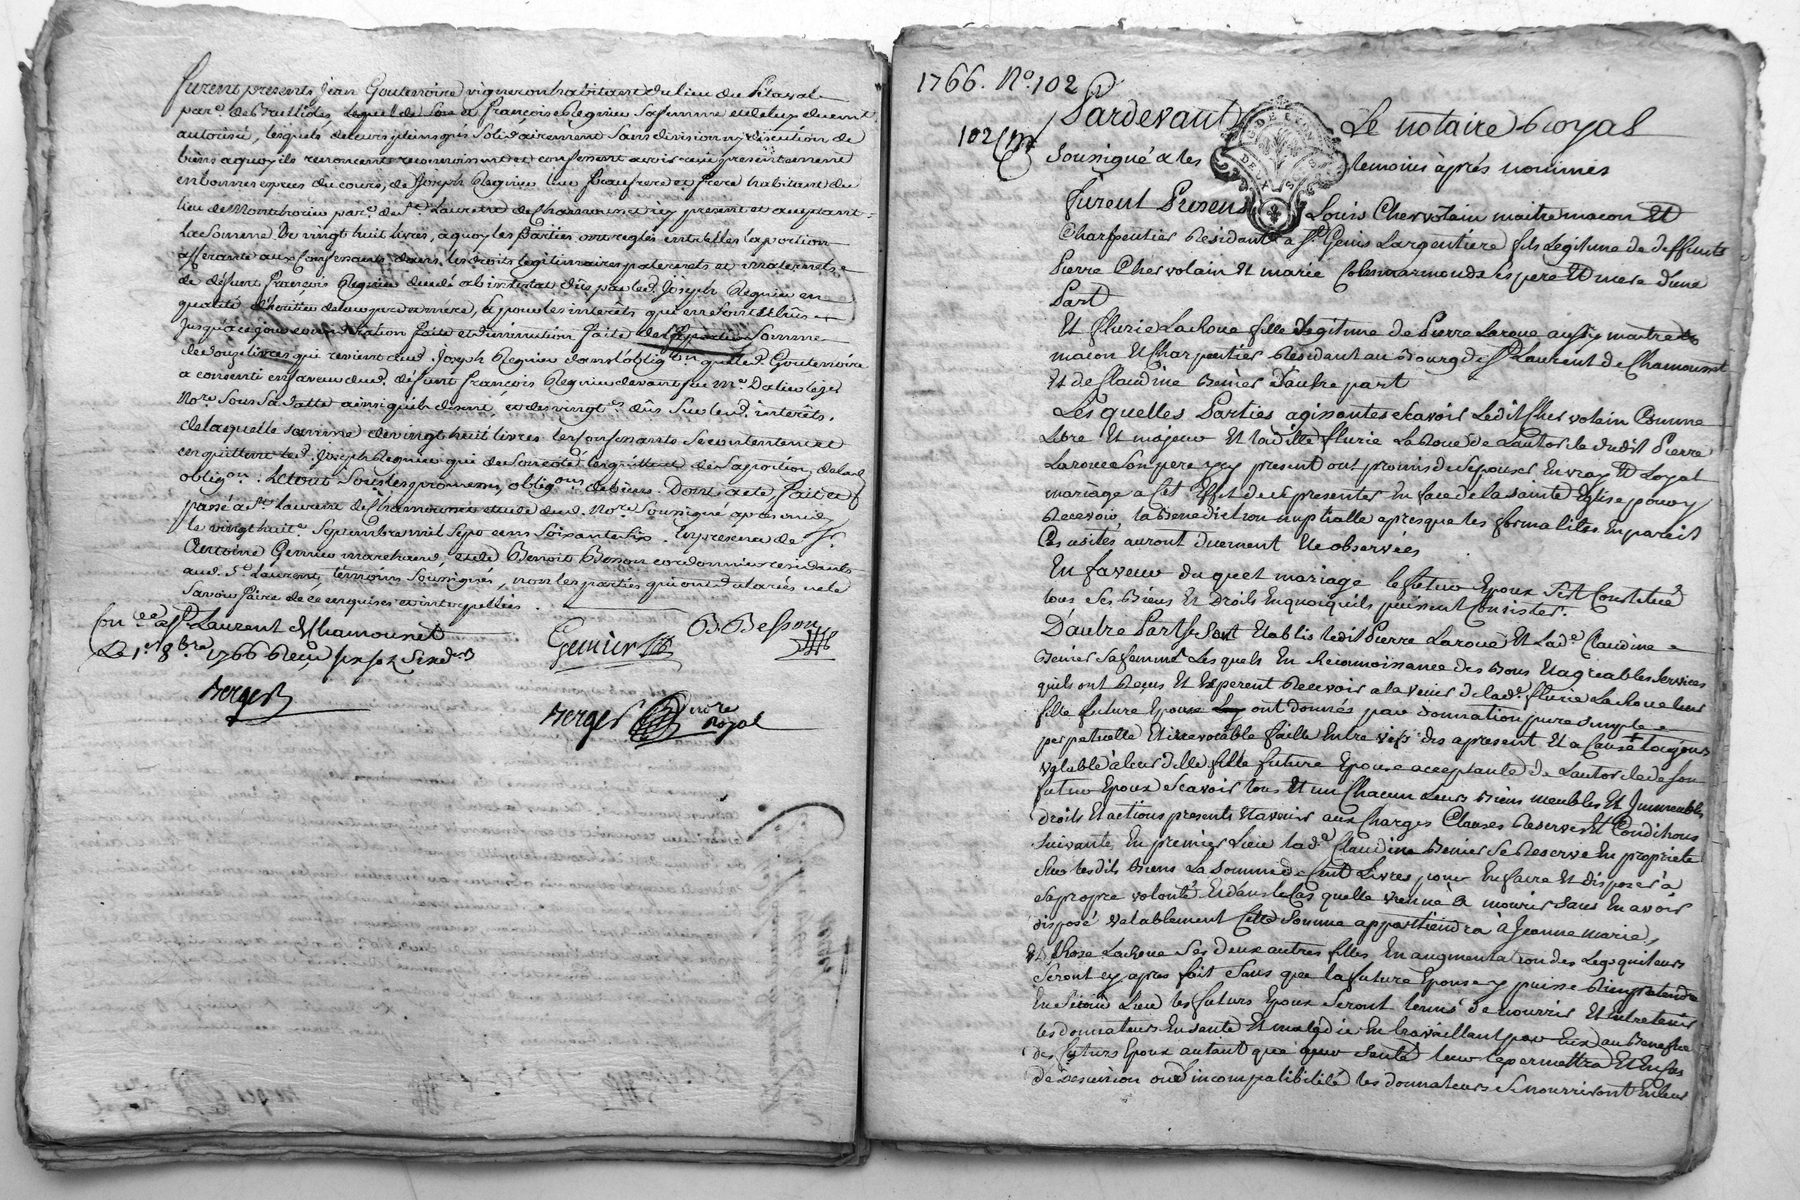 furent presents Jean Goutenoire vigneron habitant du lieu du Pitaval
par.e de Brullioles, lequel de son et françoise Regnieu sa femme et delui duement
autorisé, lesquels de leurs plein gré solidairement sans division ny discution de
biens a quoy ils renoncent reconnoissent et confessent avoir reçu presentement
en bonnes espèces du cours, de Joseph Regnieu leur beaufrere et frere habitant du
lieu de Montchorieu par.e de St Laurent de Chamousset icy present et acceptant
la somme de vingt huit livres, a quoy les parties ont reglés entr'elles la portion
afférante aux confessants dans les droits legitimaires paternels et maternels
de défunt François Regnieu decédé ab intestat dûs par led. Joseph Regnieu en
qualité d'heritier de leurs pere et mere, et pour les interêts qui en sont dhûs
jusqu'à ce jour compensation faite et diminution faite de la portion somme
de douze livres qui revient aud. Joseph Regnieu dans l'oblig.on que led. Goutenoire
a consenti en faveur dud. défunt françois Regnieu devant feu Me Dalieu leger
No.re sous sa datte ainsi qu'ils disent, et des vingt.es dûs sur lesd. interêts.
de laquelle somme de vingt huit livres les confessants se contentent et
en quittent led. Joseph Regnieu qui de son coté les quitte de sa portion de lad.
oblig.on. Le tout sous les promesses, oblig.ons de biens. Dont acte fait et
passé a St Laurent de Chamousset etude dud. No.re soussigné apres midy
le vingt huit.e septembre mil sept cens soixante six. En presence de Sr
Antoine Genier marchand, et de Benoit Besson cordonnier residants
aud. St Laurent, témoins soussignés, non les parties qui ont declarés ne le
savoir faire de ce enquises et interpellées.
Con.lé a St Laurent de Chamousset
Le 1er 8bre 1766 Reçu six sols six den.
Genier
B. Besson
Berger
Berger no.re royal
1766. No. 102
102
Pardevant Le notaire royal
Soussigné & les temoins après nommés
furent Presens Louis Chervolain maitre macon Et
Charpentier Residant a St Genis Largentiere fils Legitime de deffunts
Pierre Chervolain Et marie Colemarmonda ses pere Et mere d'une
Part
Et flurie Laroue fille Legitime de Pierre Laroue aussy maitre
macon Et Charpentier Residant au Bourg de St Laurent de Chamousset
Et de Claudine Benier d'autre part
Les quelles Parties agissantes scavoir Ledit Chervolain Comme
Libre Et majeur Et laditte flurie Laroue de Lautorité dudit Pierre
Laroue son pere icy present ont promis de sepouser En vray Et Loyal
mariage a Cet Effet de se presenter En face de la sainte Eglise pour y
Recevoir la Benediction nuptialle apres que les formalités En pareil
Cas usités auront duement Eté observées
En faveur du quel mariage le futur Epoux s'est Constitué
tous ses Biens Et Droits En quoi qu'ils puissent Consister.
D'autre Part se sont Etablis ledit Pierre Laroue Et Lad.e Claudine
Benier sa femme Les quels En Reconnoissance des Bons Et agreables services
quils ont Reçus Et Esperent Recevoir a lavenir de lad.e flurie Laroue leur
fille future Epouse ont donnés par donnation pure simple
perpetuelle Et irrevocable faitte Entre vifs des apresent Et a Cause toujours
valable a leur ditte fille future Epouse acceptante de Lautorité de son
futur Epoux scavoir tous Et un Chacun Leurs Biens meubles Et Immeubles
droits Et actions presents Et avenir aux Charges Clauses Reserves Et Conditions
suivantes En premier Lieu lad.e Claudine Benier se Reserve En proprieté
sur lesdits Biens La somme de Cent Livres pour En faire Et disposer à
sa propre volonté Et dans le Cas quelle vienne a mourir sans En avoir
disposé valablement Cette somme appartiendra à Jeanne marie,
Et Rose Laroue ses deux autres filles En augmentation des Legs qui leurs
seront cy apres fait sans que la future Epouse y puisse Rien pretendre
En second Lieu les futurs Epoux seront tenus de nourrir Et Entretenir
les donnateurs En santé Et maladie En travaillant par Eux au Benefice
des futurs Epoux autant que leur santé leur le permettra Et En Cas
de Desunion ou d'incompatibilité les donnateurs se nourriront En leur